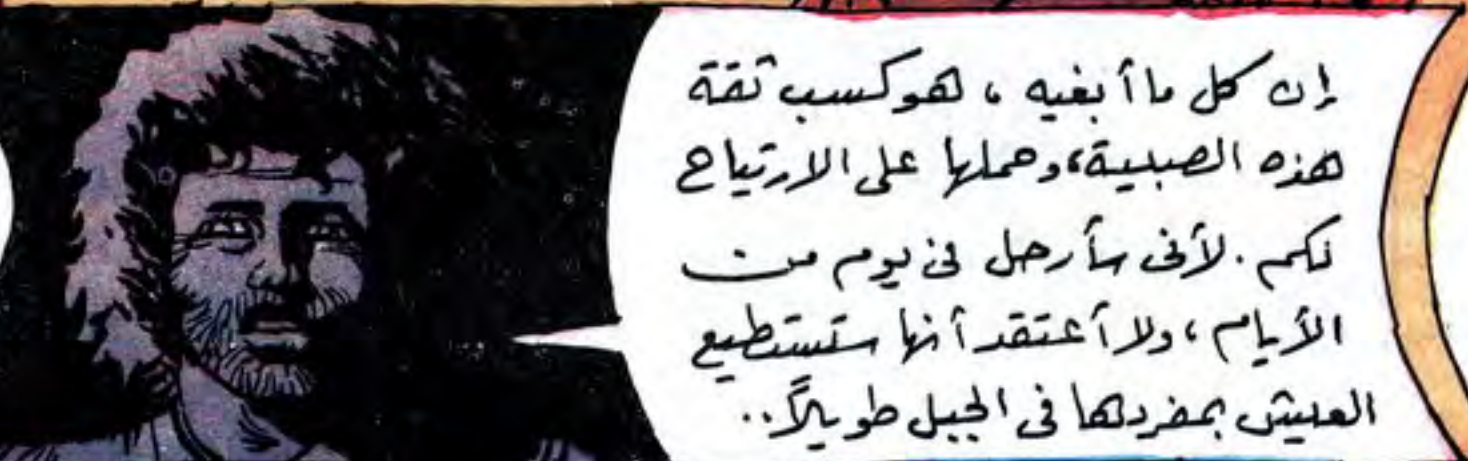 إن كل ما أبغيه ، هو كسب ثقة
هذه الصبية، وحملها على الارتياح
لكم . لأنى سأرحل فى يوم من
الأيام ، ولا أعتقد أنها ستستطيع
العيش بمفردها فى الجبل طويلاً ..